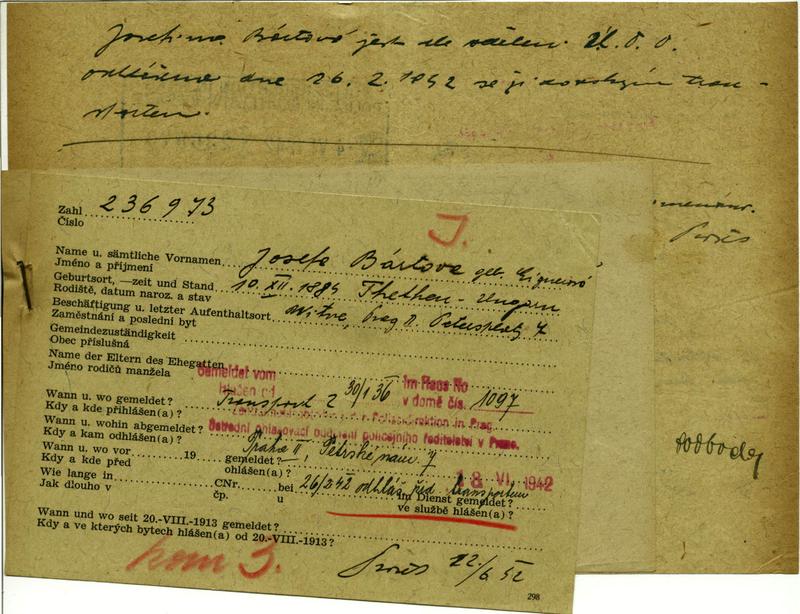 Josefina Bártová jest dle sdělení Ú. O. O.
odhlášena dne 26. 2. 1942 se židovským tran-
sportem.
Zahl 236973
Číslo
J.
Name u. sämtliche Vornamen Josefa Bártova geb.
Jméno a příjmení
Geburtsort, —zeit und Stand 10. XII. 1884 Thethen - Ungarn
Rodiště, datum naroz. a stav
Beschäftigung u. letzter Aufenthaltsort Witwe, Prag II. Petersplatz 7
Zaměstnání a poslední byt
Gemeindezuständigkeit
Obec příslušná
Name der Eltern des Ehegatten
Jméno rodičů manžela
Gemeldet vom 30/1 36 im Haus No 1097
Hlášen od v domě čís.
Wann u. wo gemeldet? Transport
Kdy a kde přihlášen(a)?
Zentralmeldeabteilung der Polizeidirektion in Prag.
Wann u. wohin abgemeldet?
Ústřední ohlašovací oddělení policejního ředitelství v Praze.
Kdy a kam odhlášen(a)?
Wann u. wo vor 19 gemeldet? Praha II, Petrské nám. 7
Kdy a kde před ohlášen(a)?
18. VI. 1942
Wie lange in CNr. bei 26/2 42 odhláš. žid. transportem im Dienst gemeldet?
Jak dlouho v čp. u ve službě hlášen(a)?
Wann und wo seit 20.-VIII.-1913 gemeldet?
Kdy a ve kterých bytech hlášen(a) od 20.-VIII.-1913?
kom 3.
298